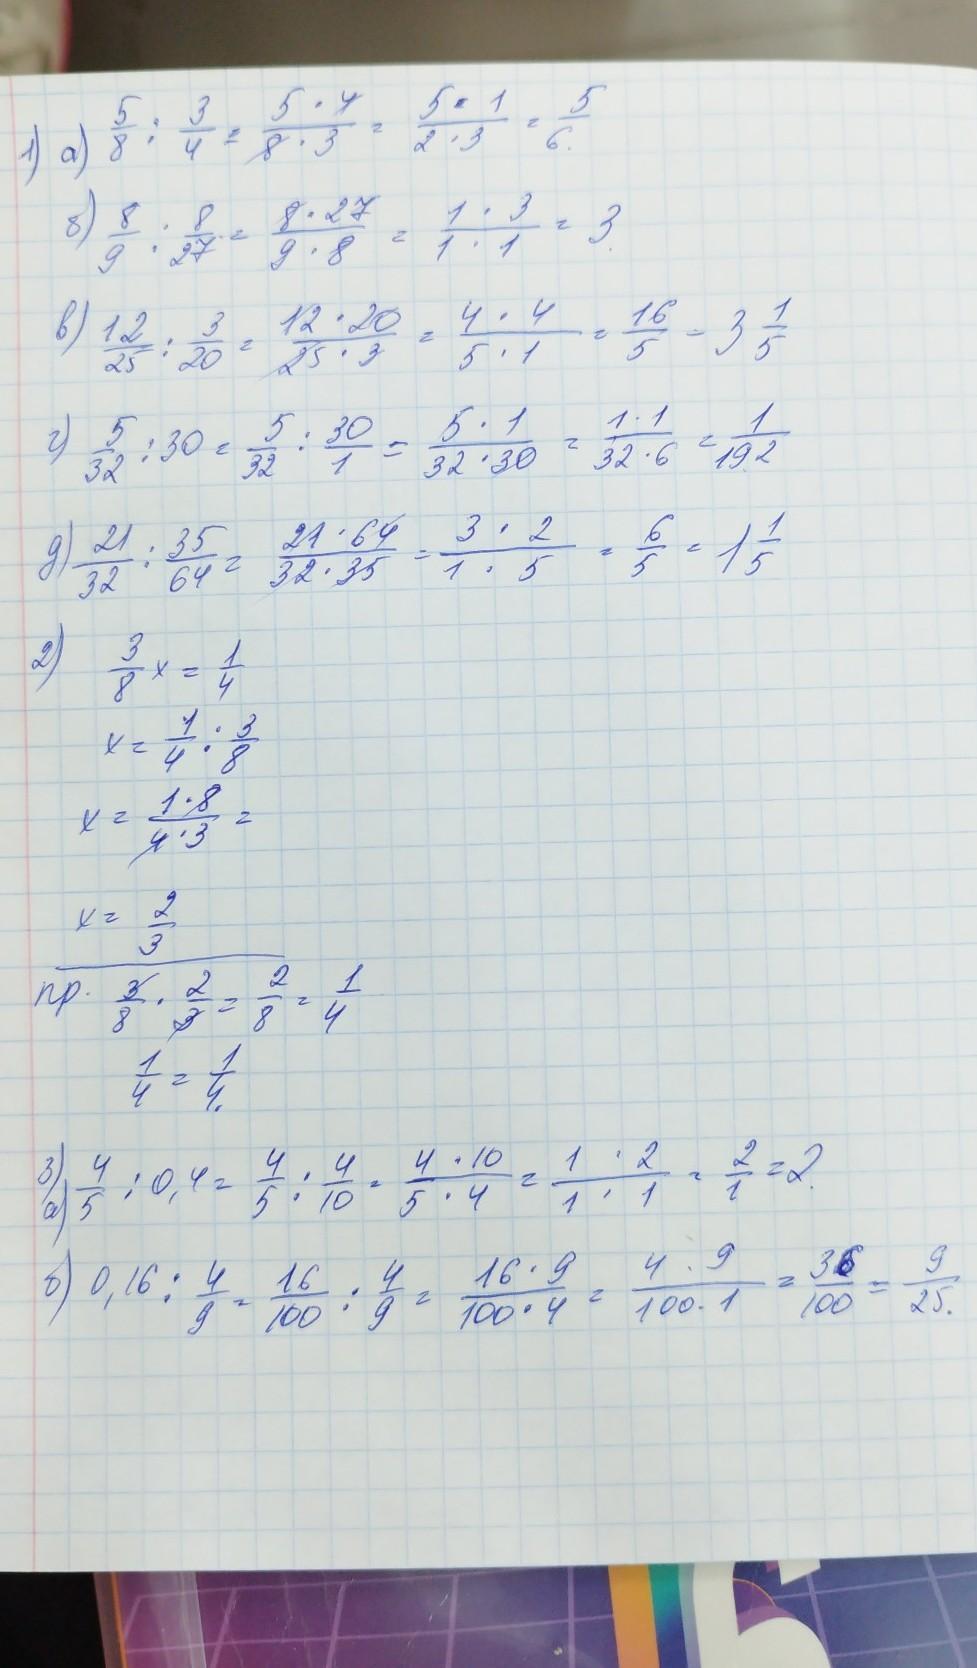 1) а) 5/8 : 3/4 = 5·4/8·3 = 5·1/2·3 = 5/6.
б) 8/9 : 8/27 = 8·27/9·8 = 1·3/1·1 = 3.
в) 12/25 : 3/20 = 12·20/25·3 = 4·4/5·1 = 16/5 = 3 1/5
г) 5/32 : 30 = 5/32 : 30/1 = 5·1/32·30 = 1·1/32·6 = 1/192
д) 21/32 : 35/64 = 21·64/32·35 = 3·2/1·5 = 6/5 = 1 1/5
2) 3/8 x = 1/4
x = 1/4 : 3/8
x = 1·8/4·3 =
x = 2/3
пр. 3/8 · 2/3 = 2/8 = 1/4
1/4 = 1/4.
3) а) 4/5 : 0,4 = 4/5 : 4/10 = 4·10/5·4 = 1·2/1·1 = 2/1 = 2.
б) 0,16 : 4/9 = 16/100 : 4/9 = 16·9/100·4 = 4·9/100·1 = 36/100 = 9/25.